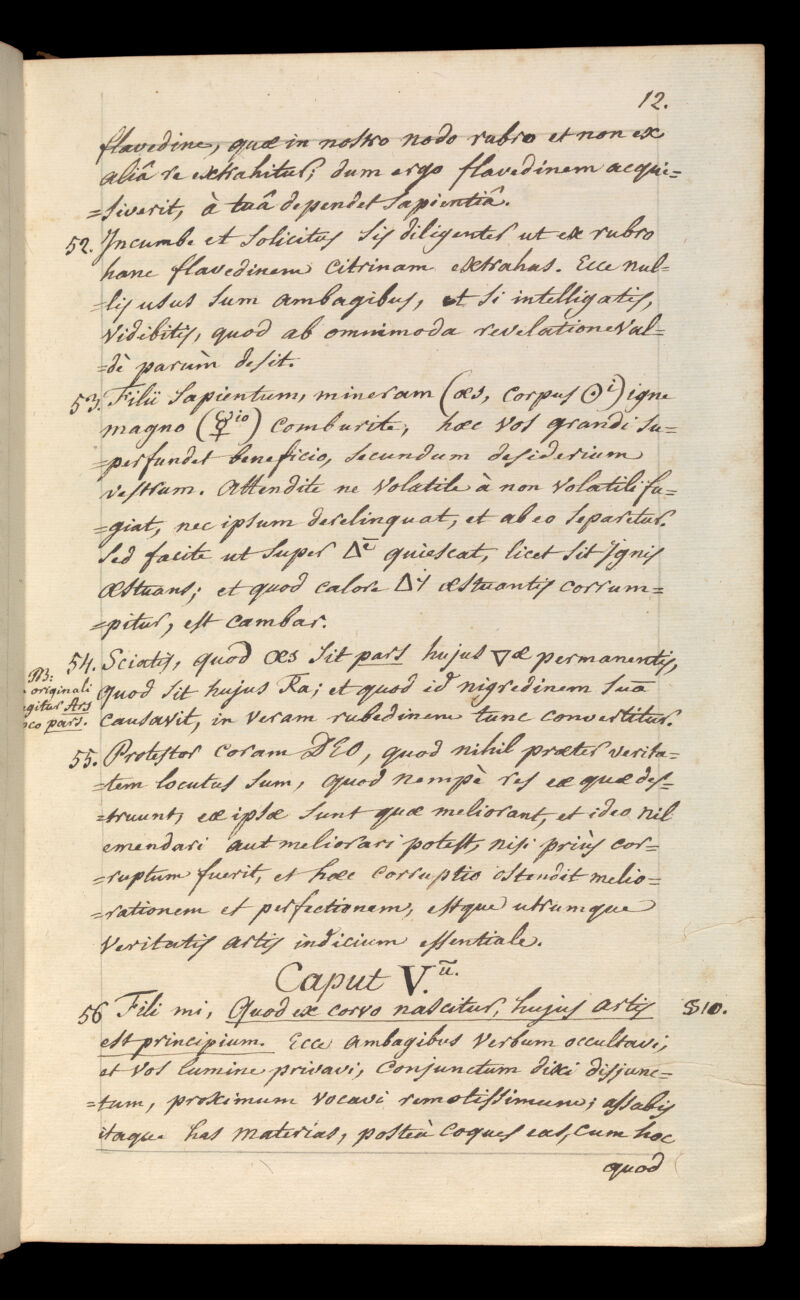 12.
flavedine, quæ in nostro nodo rubro et non ex
aliâ re extrahitur; dum ergo flavedinem acqui=
=siverit, à tuâ dependet sapientiâ.
52. Incumbe et solicitus sis diligenter ut ex rubro
hanc flavedinem citrinam extrahas. Ecce nul=
=lis usus sum ambagibus, et si intelligatis,
vidibitis, quod ab omnimoda revelatione val=
=dè parùm desit.
53. Filii sapientum, mineram (æs, corpus ☉i) igne
magno (☿io) comburite, hæc vos grandi su=
=perfundet beneficio, secundum desiderium
vestrum. Attendite ne volatile à non volatili fu=
=giat, nec ipsum derelinquat, et ab eo separetur.
sed facite ut super △e quiescat, licet sit Ignis
æstuans; et quod calore △is æstuantis corrum=
=pitur, est cambar.
54. Sciatis, quod æs sit pars hujus ▽æ permanentis,
quod sit hujus Ra; et quod id nigredinem suā
causavit, in veram rubedinem tunc convertitur.
NB:
originali
gitur Ars
oco pars.
55. Protestor coram DEO, quod nihil præter verita=
=tem locutus sum, quod nempè res eæ quæ des=
=truunt, eæ ipsæ sunt quæ meliorant, et ideo nil
emendari aut meliorari potest, nisi priùs cor=
=ruptum fuerit, et hæc corruptio ostendit melio=
=rationem et perfectionem, estque utrumque
veritatis artis indicium essentiale.
Caput V.ū.
56 Fili mi, Quod ex corvo nascitur, hujus artis
est principium. Ecce ambagibus verbum occultavi,
et vos lumine privavi, conjunctum dixi disjunc=
=tum, proximum vocavi remotissimum; assabis
itaque has materias, posteà coques eas, cum hoc
810.
quod